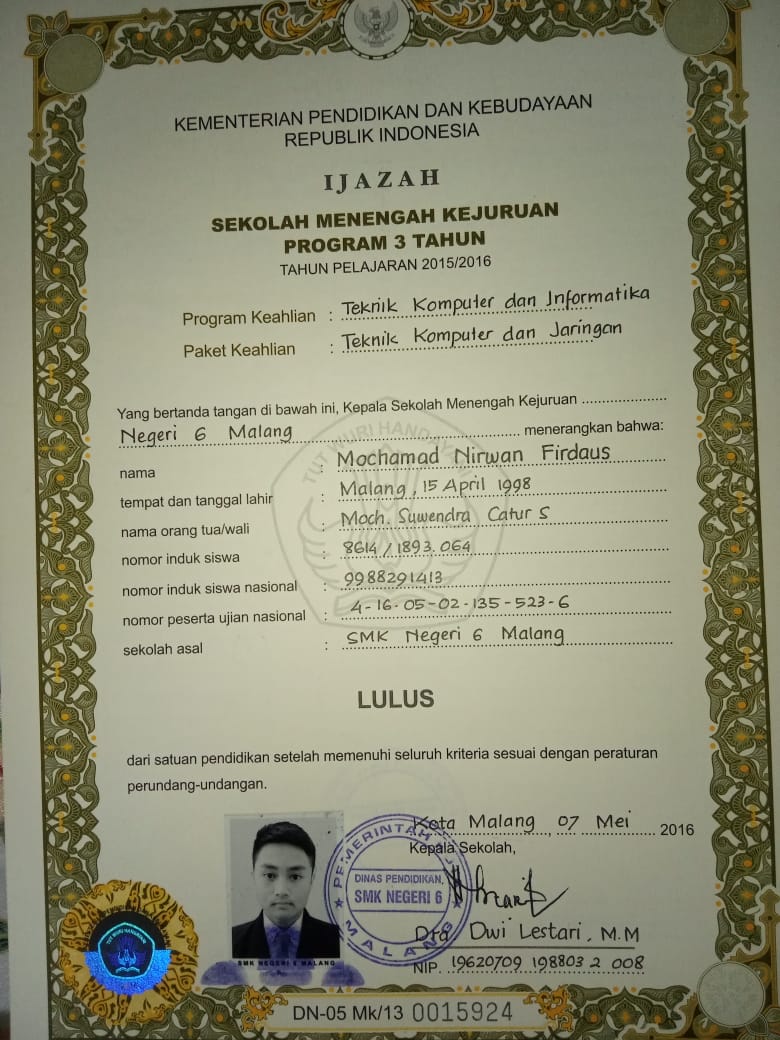 KEMENTERIAN PENDIDIKAN DAN KEBUDAYAAN
REPUBLIK INDONESIA
IJAZAH
SEKOLAH MENENGAH KEJURUAN
PROGRAM 3 TAHUN
TAHUN PELAJARAN 2015/2016
Program Keahlian : Teknik Komputer dan Informatika
Paket Keahlian : Teknik Komputer dan Jaringan
Yang bertanda tangan di bawah ini, Kepala Sekolah Menengah Kejuruan
Negeri 6 Malang menerangkan bahwa:
TUT WURI HANDAYANI
nama : Mochamad Nirwan Firdaus
tempat dan tanggal lahir : Malang, 15 April 1998
nama orang tua/wali : Moch. Suwendra Catur S
nomor induk siswa : 8614 / 1893. 064
nomor induk siswa nasional : 9988291413
nomor peserta ujian nasional : 4-16-05-02-135-523-6
sekolah asal : SMK Negeri 6 Malang
LULUS
dari satuan pendidikan setelah memenuhi seluruh kriteria sesuai dengan peraturan
perundang-undangan.
Kota Malang, 07 Mei 2016
Kepala Sekolah,
PEMERINTAH
DINAS PENDIDIKAN
SMK NEGERI 6
MALANG
Dra. Dwi Lestari, M.M
NIP. 19620709 198803 2 008
SMK NEGERI 6 MALANG
TUT WURI HANDAYANI
DN-05 Mk/13 0015924